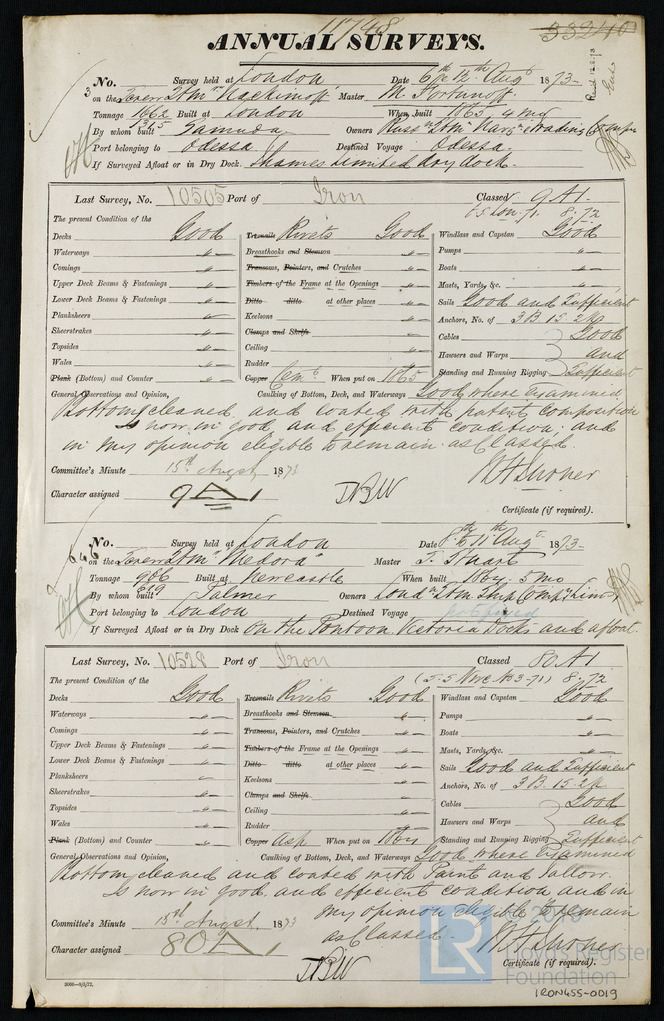 11748
33240
ANNUAL SURVEYS.
No. Survey held at London Date 6th & 12th Augt 1873-
3 on the Screw Stmr "Nachimoff" Master M. Fortunoff
Tonnage 1662 Built at London When built 1865 4 mo
By whom built Samuda Owners Russn Stm Navn & Trading Compn
Port belonging to Odessa Destined Voyage Odessa.
If Surveyed Afloat or in Dry Dock Thames Limited dry dock.
Last Survey, No. 10505 Port of Iron Classed 9 A1.
SS Lon. 71. 8.72
The present Condition of the
Decks Good Treenails Rivets Good Windlass and Capstan Good
Waterways " Breasthooks and Stemson " Pumps "
Comings " Transoms, Pointers, and Crutches " Boats "
Upper Deck Beams & Fastenings " Timbers of the Frame at the Openings " Masts, Yards, &c. "
Lower Deck Beams & Fastenings " Ditto ditto at other places " Sails Good and Sufficient
Planksheers " Keelsons " Anchors, No. of 3 B. 1 S. 2 Kg
Sheerstrakes " Clamps and Shelfs " Cables Good
Topsides " Ceiling " Hawsers and Warps and
Wales " Rudder " Standing and Running Rigging Sufficient
Plank (Bottom) and Counter " Copper Cemt When put on 1865
General Observations and Opinion, Caulking of Bottom, Deck, and Waterways Good where Examined
Bottom cleaned and coated with patent composition
Is now in good and efficient condition; and
in my opinion eligible to remain as Classed.
Committee's Minute 15th Augst 1873
Character assigned 9 A 1
Certificate (if required).
No. Survey held at London Date 8th & 11th Augt 1873-
646 on the Screw Stmr "Medora" Master J. Stuart
Tonnage 906 Built at Newcastle When built 1864. 5 mo
619
By whom built Palmer Owners Lond Stm Ship Comp Limd
Port belonging to London Destined Voyage
If Surveyed Afloat or in Dry Dock On the Pontoon Victoria Docks and afloat.
Last Survey, No. 10528 Port of Iron Classed 80 A1
8.72
The present Condition of the
Decks Good Treenails Rivets Good Windlass and Capstan Good
Waterways " Breasthooks and Stemson " Pumps "
Comings " Transoms, Pointers, and Crutches " Boats "
Upper Deck Beams & Fastenings " Timbers of the Frame at the Openings " Masts, Yards, &c. "
Lower Deck Beams & Fastenings " Ditto ditto at other places " Sails Good and Sufficient
Planksheers " Keelsons " Anchors, No. of 3 B. 1 S. 2 K
Sheerstrakes " Clamps and Shelfs " Cables Good
Topsides " Ceiling " Hawsers and Warps and
Wales " Rudder " Standing and Running Rigging Sufficient
Plank (Bottom) and Counter " Copper Asph When put on 1864
General Observations and Opinion, Caulking of Bottom, Deck, and Waterways Good where Examined
Bottom cleaned and coated with Paint and Tallow.
Is now in good and efficient condition and in
my opinion eligible to remain
as Classed.
Committee's Minute 15th Augst. 1873
Character assigned 80 A 1
Certificate (if required).
LR © 2016 Lloyd's Register Foundation
IRON455-0019